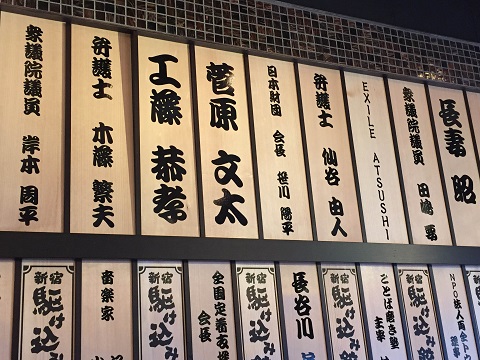 衆議院議員 岸本 周平
弁護士 木藤 繁夫
工藤 恭孝
菅原 文太
日本財団 会長 笹川 陽平
弁護士 仙谷 由人
EXILE ATSUSHI
衆議院議員 田嶋 要
長妻 昭
新宿 駆け込み
音楽家
新宿 駆け込み
全国足着友
会長
新宿 駆け込み
長谷川
新宿 駆け込み
ことば磨き塾
主宰
新宿 駆け込み
NPO法人